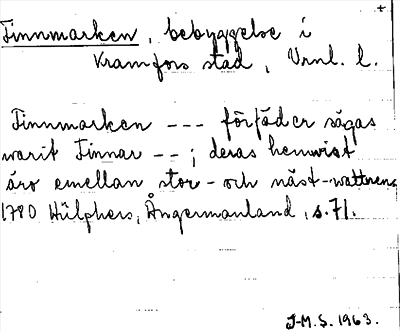 +
Finnmarken, bebyggelse i
Kramfors stad, Vrnl. l.
Finnmarken --- förfäder sägas
warit Finnar --; deras hemwist
äro emellan stor- och näst-wattnens
1780 Hülphers, Ångermanland, s. 71.
J-M.S. 1963.